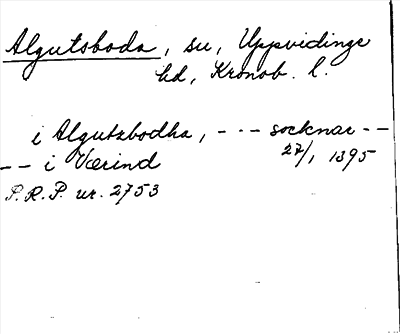 Algutsboda, sn, Uppvidinge
hd, Kronob. l.
i Algutzbodha, - - - socknar - -
- - i Værind 27/1 1395
P.R.P. nr. 2753